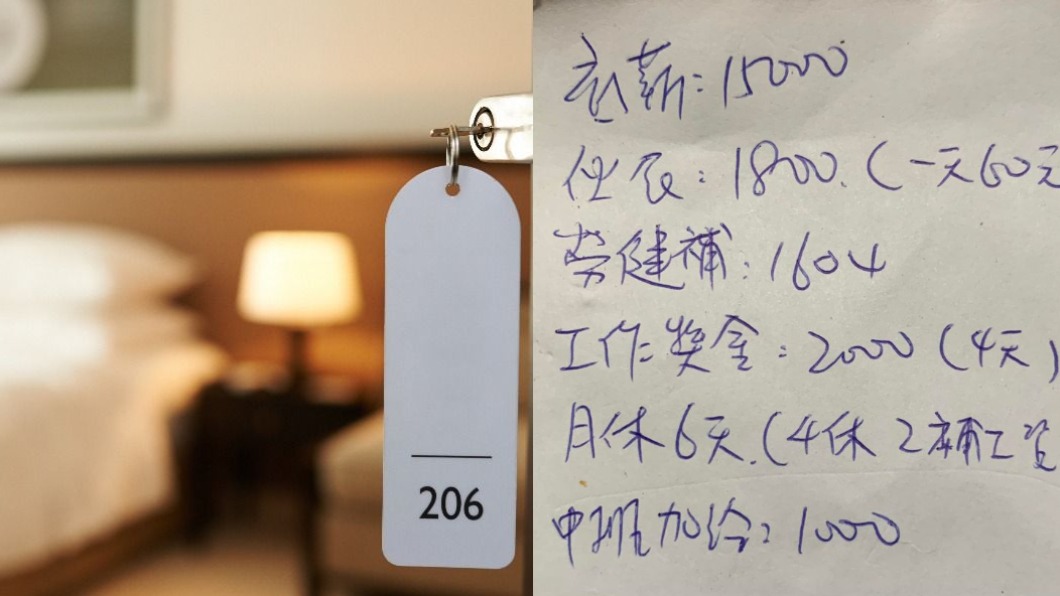 206
底薪：15000
伙食：1800.（一天60天
劳健補：1604
工作獎金：2000（4天）
月休6天.（4休2補工資
中班加给：1000